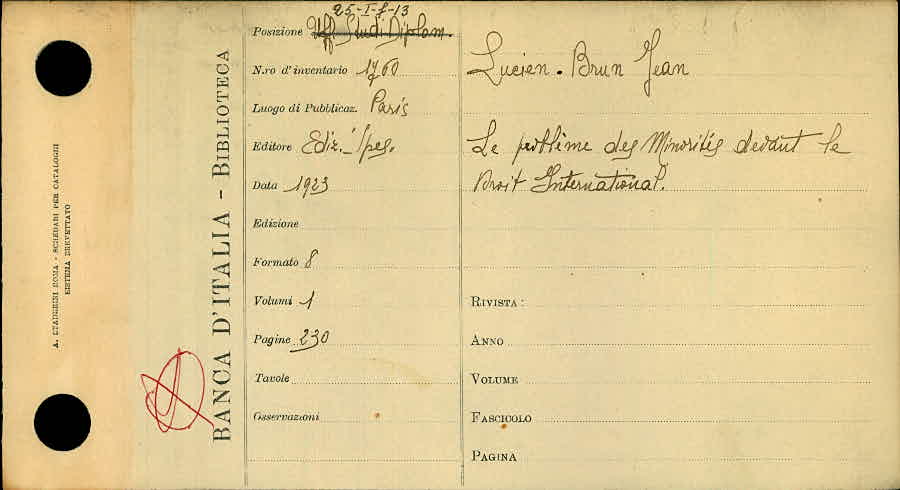 A. STADERINI ROMA - SCHEDARI PER CATALOGHI
SISTEMA BREVETTATO
BANCA D'ITALIA - BIBLIOTECA
25-I-f-13
Posizione Uff Studi Diplom.
N.ro d'inventario 1760
Luogo di Pubblicaz. Paris
Editore Ediz. Spes.
Data 1923
Edizione
Formato 8
Volumi 1
Pagine 230
Tavole
Osservazioni
Lucien-Brun Jean
Le problème des Minorités devant le
Droit International.
RIVISTA:
ANNO
VOLUME
FASCICOLO
PAGINA